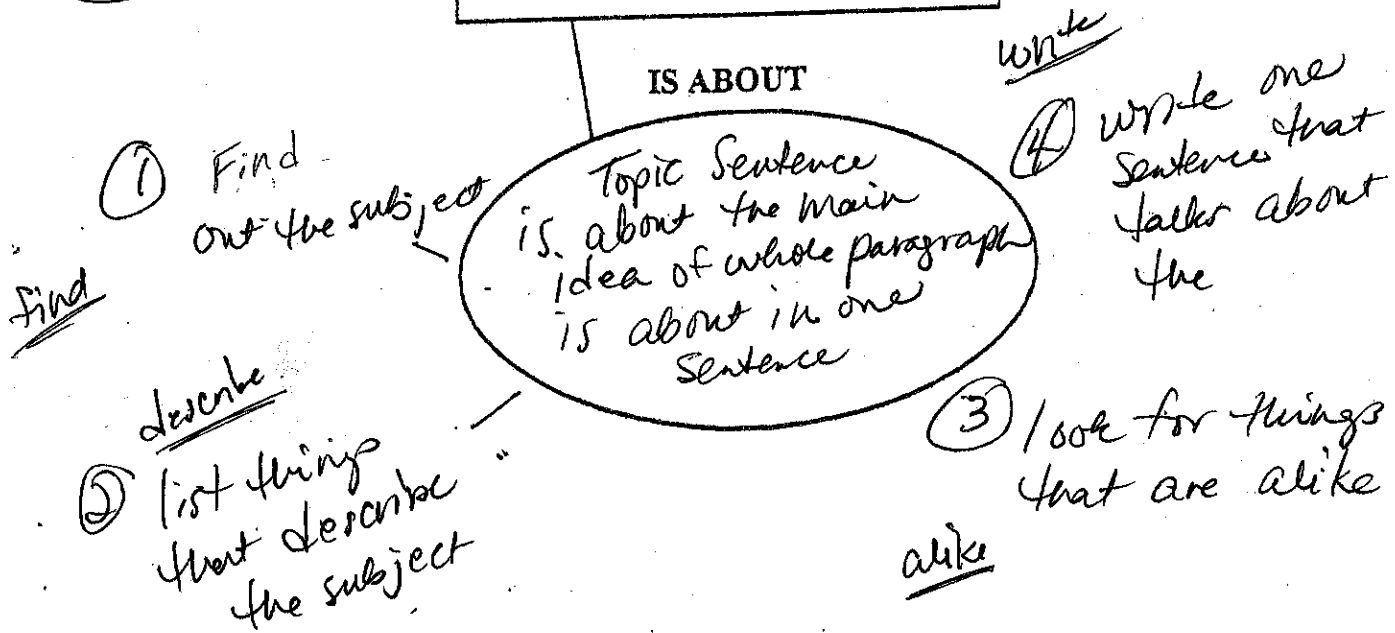 IS ABOUT
Topic Sentence
is about the main
idea of whole paragraph
is about in one
sentence
① Find
out the subject
find
describe
② list things
that describe
the subject
③ look for things
that are alike
alike
write
④ write one
sentence that
talks about
the